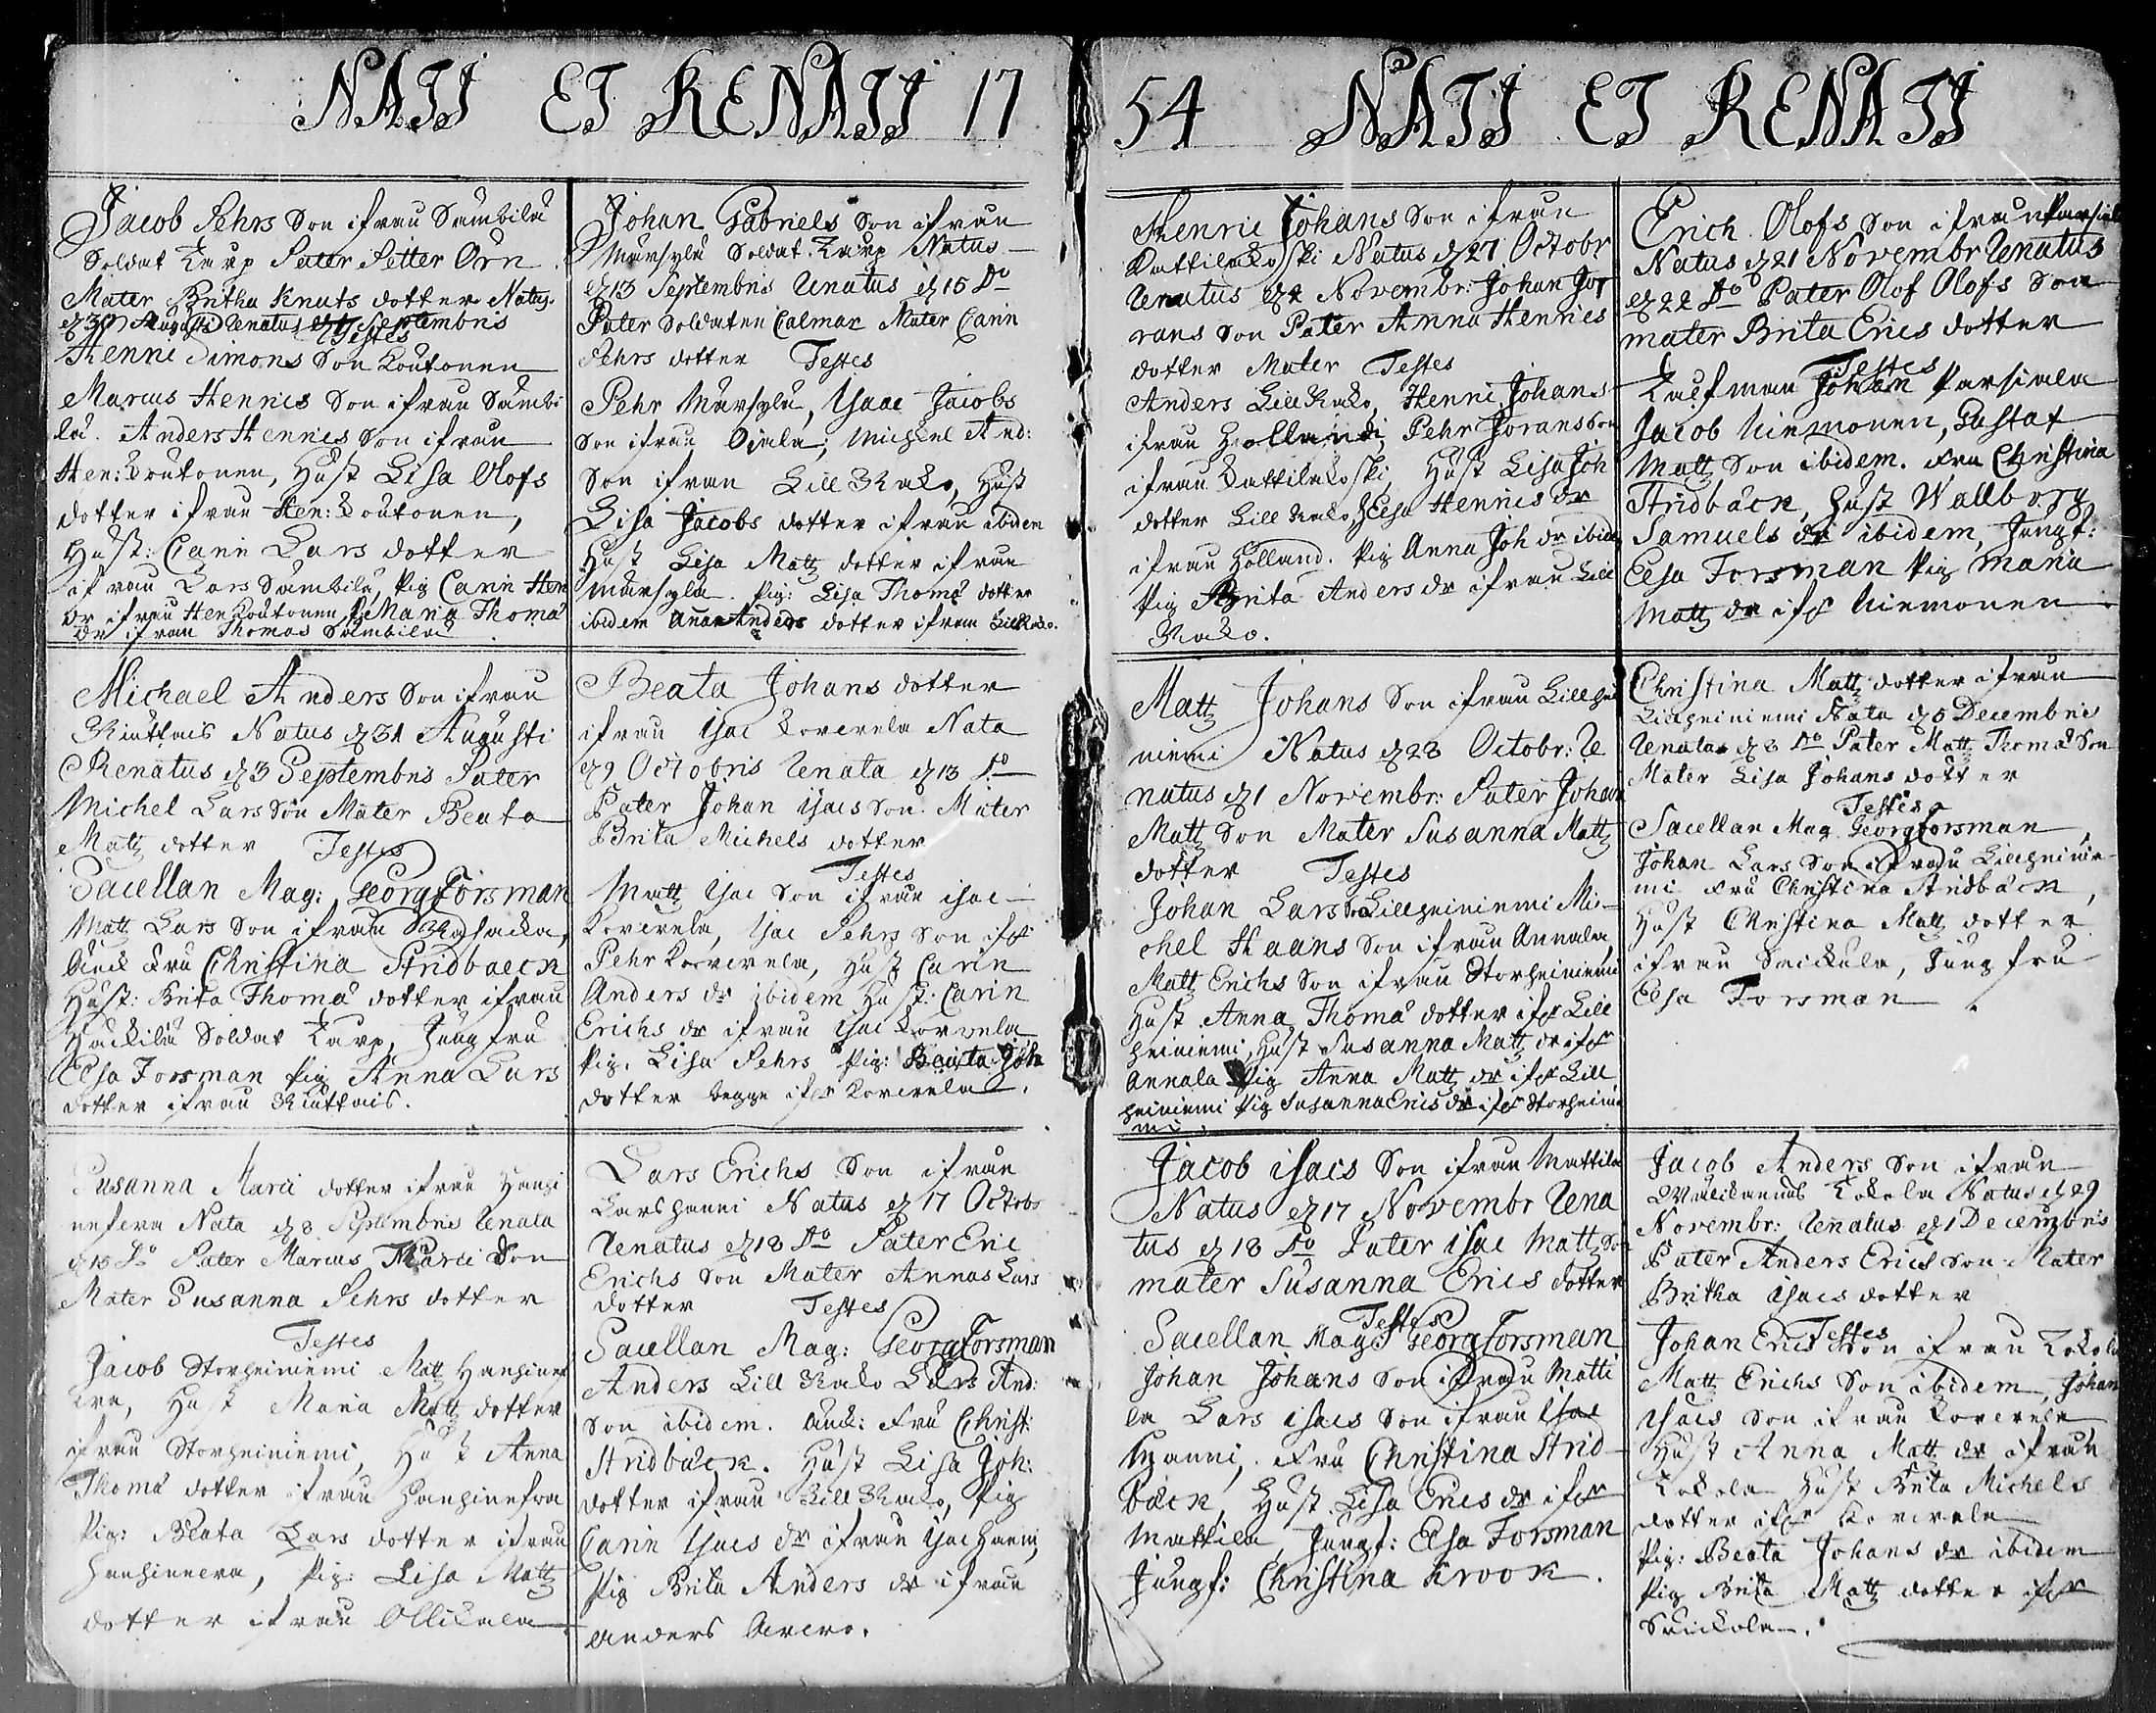 NATI ET RENATI 17
Jacob Pehrs Son ifrån Sambila
Soldat Karp Pater Petter Örn
Mater Britha Knuts dotter Natus
d 30 Augusti Renatus d 1 Septembris
Testes
Henric Simons Son Koutonen
Marcus Henrics Son ifrån Sambi
la. Anders Henrics Son ifrån
Hen: Koutonen, Hust Lisa Olofs
dotter ifrån Hen: Koutonen,
Hust: Carin Lars dotter
ifrån Lars Sambila, Pig Carin Hen
dr ifrån Hen Koutonen, P. Maria Thoma
dr ifrån Thomas Sambila
Michael Anders Son ifrån
Natus d 31 Augusti
Renatus d 3 Septembris Pater
Michel Lars Son Mater Beata
Matz dotter Testes
Sacellan Mag: Georg Forsman
Matz Lars Son ifrån
Fru Christina Stridbaeck
Hust: Brita Thoma dotter ifrån
Soldat Karp, Jungfru
Elsa Forsman Pig Anna Lars
dotter ifrån
Susanna Marci dotter ifrån Hanhi
Nata d 8 Septembris Renata
d 15 Do Pater Marcus Marci Son
Mater Susanna Pehrs dotter
Testes
Jacob Storheiniemi Matz
Hust Maria Matz dotter
ifrån Storheiniemi, Hust Anna
Thoma dotter ifrån
Pig: Beata Lars dotter ifrån
Pig: Lisa Matz
dotter ifrån Ollikala
Johan Gabriels Son ifrån
Marsyla Soldat Karp Natus
d 13 Septembris Renatus d 15 Do
Pater Soldaten Calmar Mater Carin
Pehrs dotter Testes
Pehr Marsyla, Isaac Jacobs
Son ifrån Ojala, Michel And:
Son ifrån Lill Rako, Hust
Lisa Jacobs dotter ifrån ibidem
Hust Lisa Matz dotter ifrån
Marsyla. Pig: Lisa Thoma dotter
ibidem Anna Anders dotter ifrån Lill Rako.
Beata Johans dotter
ifrån Isac Korvela Nata
d 9 Octobris Renata d 13 Do
Pater Johan Isacs Son Mater
Brita Michels dotter
Testes
Matz Isac Son ifrån Isac
Isac Pehrs Son
Pehr Hust Carin
Anders dr ibidem Hust: Carin
Erichs dr ifrån Isac
Pig: Lisa Pehrs Pig: Beata Joh
dotter begge
Lars Erichs Son ifrån
Lars Hanni Natus d 17 Octobr
Renatus d 18 Do Pater Eric
Erichs Son Mater Annas Lars
dotter Testes
Sacellan Mag: Georg Forsman
Anders Lill Rako Lars And:
Son ibidem. Fru Christ:
Stridbäck. Hust Lisa Joh:
dotter ifrån Lill Rako, Pig
Carin Isacs dr ifrån Isac Hanni,
Pig Brita Anders dr ifrån
Anders
54 NATI ET RENATI
Henric Johans Son ifrån
Kattilakoski Natus d 27 Octobr
Renatus d 2 Novembr: Johan Jör
rans Son Pater Anna Henrics
dotter Mater Testes
Anders Lill Rako, Henric Johans
ifrån Hollandi Pehr Jörans Son
ifrån Kattilakoski, Hust Lisa Joh
dotter Lill Rako, Elsa Henrics dr
ifrån Holland. Pig Anna Joh dr ibid
Pig Brita Anders dr ifrån Lill
Rako.
Matz Johans Son ifrån Lillhei
niemi Natus d 28 Octobr: Re
natus d 1 Novembr: Pater Johan
Matz Son Mater Susanna Matz
dotter Testes
Johan Lars Son Lillheiniemi Mi
chel Staans Son ifrån Annala,
Matz Erichs Son ifrån Storheiniemi
Hust Anna Thoma dotter ifr Lill
heiniemi, Hust Susanna Matz dr ifr
Annala Pig Anna Matz dr ifr Lill
heiniemi Pig Susanna Erics dr ifr Storheinie
mi.
Jacob Isacs Son ifrån Mattila
Natus d 17 Novembr Rena
tus d 18 Do Pater Isac Matz Son
Mater Susanna Erics dotter
Testes
Sacellan Mag: Georg Forsman
Johan Johans Son ifrån Matti
la Lars Isacs Son ifrån Isac
Hanni, Fru Christina Strid
bäck, Hust Lisa Erics dr ifr
Mattila, Jungf: Elsa Forsman
Jungf: Christina Krook.
Erich Olofs Son ifrån Parsiala
Natus d 21 Novembr Renatus
d 22 Do Pater Olof Olofs Son
Mater Brita Erics dotter
Testes
Johan Parsiala
Jacob Niemonen, Gustaf
Matz Son ibidem. Fru Christina
Stridbäck, Hust Wallborg
Samuels dr ibidem, Jungf:
Elsa Forsman Pig Maria
Matz dr ifr Niemonen
Christina Matz dotter ifrån
Lillheiniemi Nata d 5 Decembris
Renata d 8 Do Pater Matz Thoma Son
Mater Lisa Johans dotter
Testes
Sacellan Mag Georg Forsman,
Johan Lars Son ifrån Lillheinie
mi Fru Christina Stridbäck,
Hust Christina Matz dotter
ifrån Jungfru
Elsa Forsman
Jacob Anders Son ifrån
Kokola Natus d 29
Novembr: Renatus d 1 Decembris
Pater Anders Erics Son Mater
Britha Isacs dotter
Testes
Johan Erics Son ifrån Kokola
Matz Erichs Son ibidem, Johan
Isacs Son ifrån
Hust Anna Matz dr ifrån
Kokola Hust Brita Michels
dotter ifr
Pig: Beata Johans dr ibidem
Pig Brita Matz dotter ifr